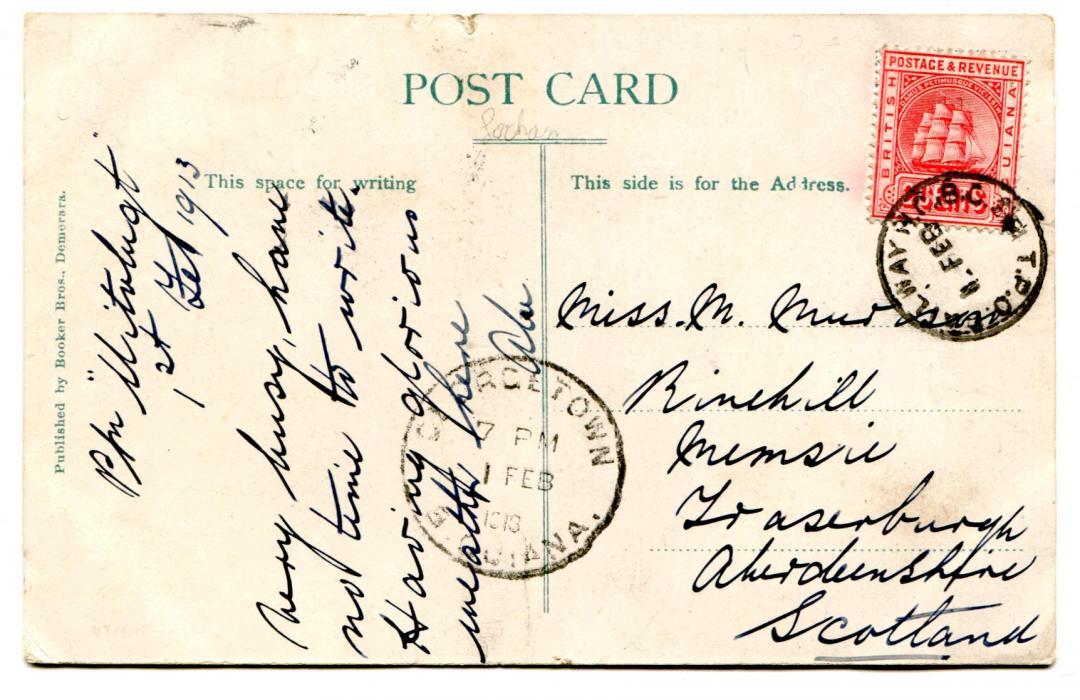 POST CARD
This space for writing
This side is for the Address.
Published by Booker Bros., Demerara.
Pln "Uitvlugt"
1st Feb 1913
Very busy, have
not time to write.
Having glorious
weather here
POSTAGE & REVENUE
BRITISH
GUIANA
DAMUS PETIMUSQUE VICISSIM
2 CENTS
RAILWAY
T.P.O.
FEB
GEORGETOWN
7 PM
1 FEB
1913
B. GUIANA.
Miss. M.
Rinehill
Memsie
Fraserburgh
Aberdeenshire
Scotland